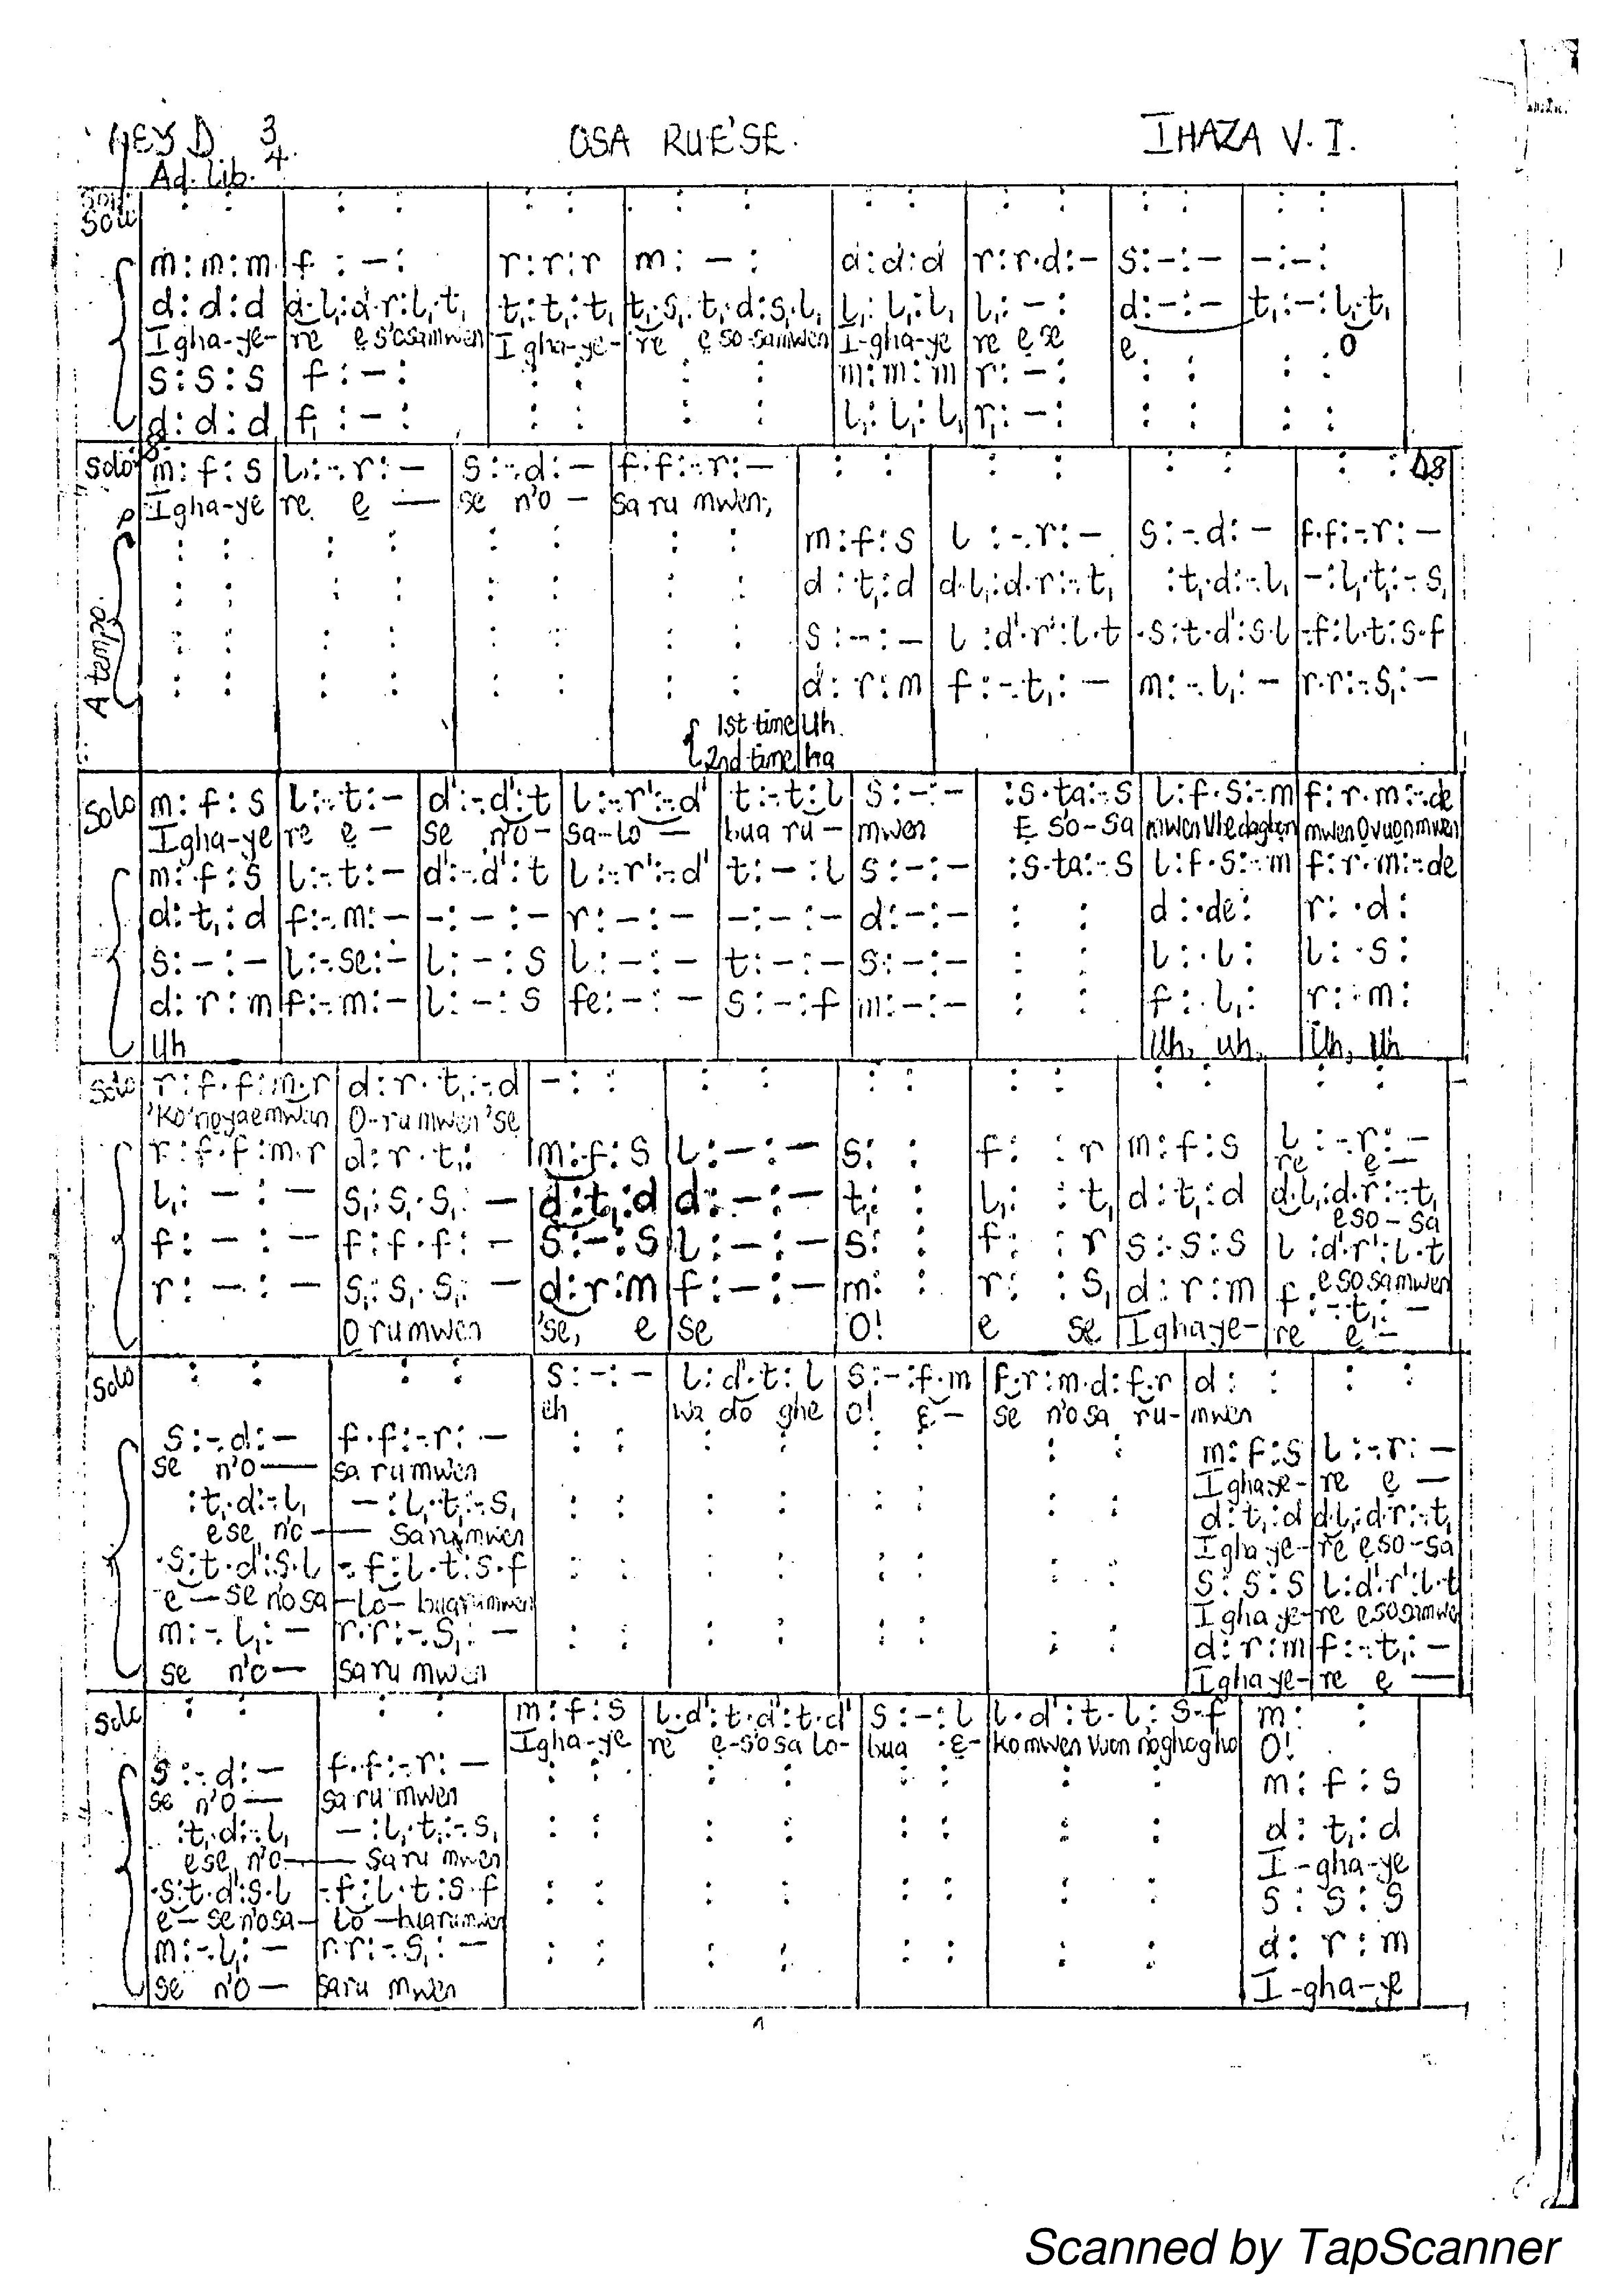 KEY D 3/4 OSA RUE'SE. IHAZA V. I.
Ad. lib.
Solo : : | : : | : : | : : | : : | : : | : : | : :
m:m:m | f :–: | r:r:r | m: – : | d:d:d | r:r.d:– | s:–:– | –:–:
d:d:d | d.l₁:d.r:l₁.t₁ | t₁:t₁:t₁ | t₁.s₁.t₁.d:s₁.l₁ | l₁:l₁:l₁ | l₁:–: | d:–:– | t₁:–:l₁.t₁
Igha-ye- | re ẹ s'osamwen | Igha-ye- | re ẹ so-samwen | I-gha-ye | re ẹ se | e | O
s:s:s | f:–: | : : | : : | m:m:m | r:–: | : : | : :
d:d:d | f₁:–: | : : | : : | l₁:l₁:l₁ | r₁:–: | : : | : :
Solo m:f:s | l:-.r:– | s:-.d:– | f.f:-.r:– | : : | : : | : : | : : D.S
Igha-ye | re ẹ — | se n'o – | sa ru mwen,
A tempo
: : | : : | : : | : : | m:f:s | l:-.r:– | s:-.d:– | f.f:-.r:–
: : | : : | : : | : : | d:t₁:d | d.l₁:d.r:-.t₁ | :t₁.d:-.l₁ | –:l₁.t₁:-.s₁
: : | : : | : : | : : | s:–:– | l:d'.r':l.t | .s:t.d':s.l | -.f:l.t:s.f
: : | : : | : : | : : | d:r:m | f:-.t₁:– | m:-.l₁:– | r.r:-.s₁:–
1st time Uh.
2nd time ha
Solo m:f:s | l:-.t:– | d':-.d':t | l:-.r':-.d' | t:-.t:l | s:–:– | :s.ta:-.s | l:f.s:-.m | f:r.m:-.de
Igha-ye | re ẹ – | se n'o- | sa-lo — | bua ru – | mwen | Ẹ so-sa | mwen Vbedagbon | mwen Ovuonmwen
m:f:s | l:-.t:– | d':-.d':t | l:-.r':-.d' | t:–:l | s:–:– | :s.ta:-.s | l:f.s:-.m | f:r.m:-.de
d:t₁:d | f:-.m:– | –:–:– | r:–:– | –:–:– | d:–:– | : : | d:.de: | r:.d:
s:–:– | l:-.se:– | l:–:s | l:–:– | t:–:– | s:–:– | : : | l:.l: | l:.s:
d:r:m | f:-.m:– | l:–:s | fe:–:– | s:–:f | m:–:– | : : | f:.l₁: | r:.m:
Uh | Uh, uh, | Uh, Uh
Solo r:f.f:m.r | d:r.t₁:-.d | –: : | : : | : : | : : | : : | : :
O-ru mwen 'se
r:f.f:m.r | d:r.t₁: | m:f:s | l:–:– | s: : | f: :r | m:f:s | l:-.r:–
re ẹ —
l₁:–:– | s₁:s₁.s₁:– | d:t₁:d | d:–:– | t₁: : | l₁: :t₁ | d:t₁:d | d.l₁:d.r:-.t₁
eso-sa
f:–:– | f:f.f:– | s:–:s | l:–:– | s: : | f: :r | s:s:s | l:d'.r':l.t
eso samwen
r:–:– | s₁:s₁.s₁:– | d:r:m | f:–:– | m: : | r: :s₁ | d:r:m | f:-.t₁:–
O rumwen | 'se, e | se | O! | e se | Ighaye- | re ẹ –
Solo : : | : : | s:–:– | l:d'.t:l | s:–:f.m | f.r:m.d:f.r | d: : | : :
eh | wa do ghe | O! Ẹ – | se n'osa ru- | mwen
s:-.d:– | f.f:-.r:– | : : | : : | : : | : : | m:f:s | l:-.r:–
se n'o — | sa ru mwen | Igha ye- | re ẹ —
:t₁.d:-.l₁ | –:l₁.t₁:-.s₁ | : : | : : | : : | : : | d:t₁:d | d.l₁:d.r:-.t₁
ese n'o — | sarumwen | Igha ye- | re ẹso-sa
.s:t.d':s.l | -.f:l.t:s.f | : : | : : | : : | : : | s:s:s | l:d'.r':l.t
e — se n'osa | –lo– buarumwen | Igha ye- | re ẹsosamwen
m:-.l₁:– | r.r:-.s₁:– | : : | : : | : : | : : | d:r:m | f:-.t₁:–
se n'o — | saru mwen | Igha ye- | re ẹ —
Solo : : | : : | m:f:s | l.d':t.d':t.d' | s:–:l | l.d':t.l:s.f | m: :
Igha-ye | re ẹ-s'osa lo- | bua Ẹ- | ko mwen vuon noghogho | O!
s:-.d:– | f.f:-.r:– | : : | : : | : : | : : | m:f:s
se n'o — | saru mwen
:t₁.d:-.l₁ | –:l₁.t₁:-.s₁ | : : | : : | : : | : : | d:t₁:d
ese n'o — | saru mwen | I-gha-ye
.s:t.d':s.l | -.f:l.t:s.f | : : | : : | : : | : : | s:s:s
e — se n'osa – | lo – buarumwen
m:-.l₁:– | r.r:-.s₁:– | : : | : : | : : | : : | d:r:m
se n'o — | saru mwen | I-gha-ye
1
Scanned by TapScanner